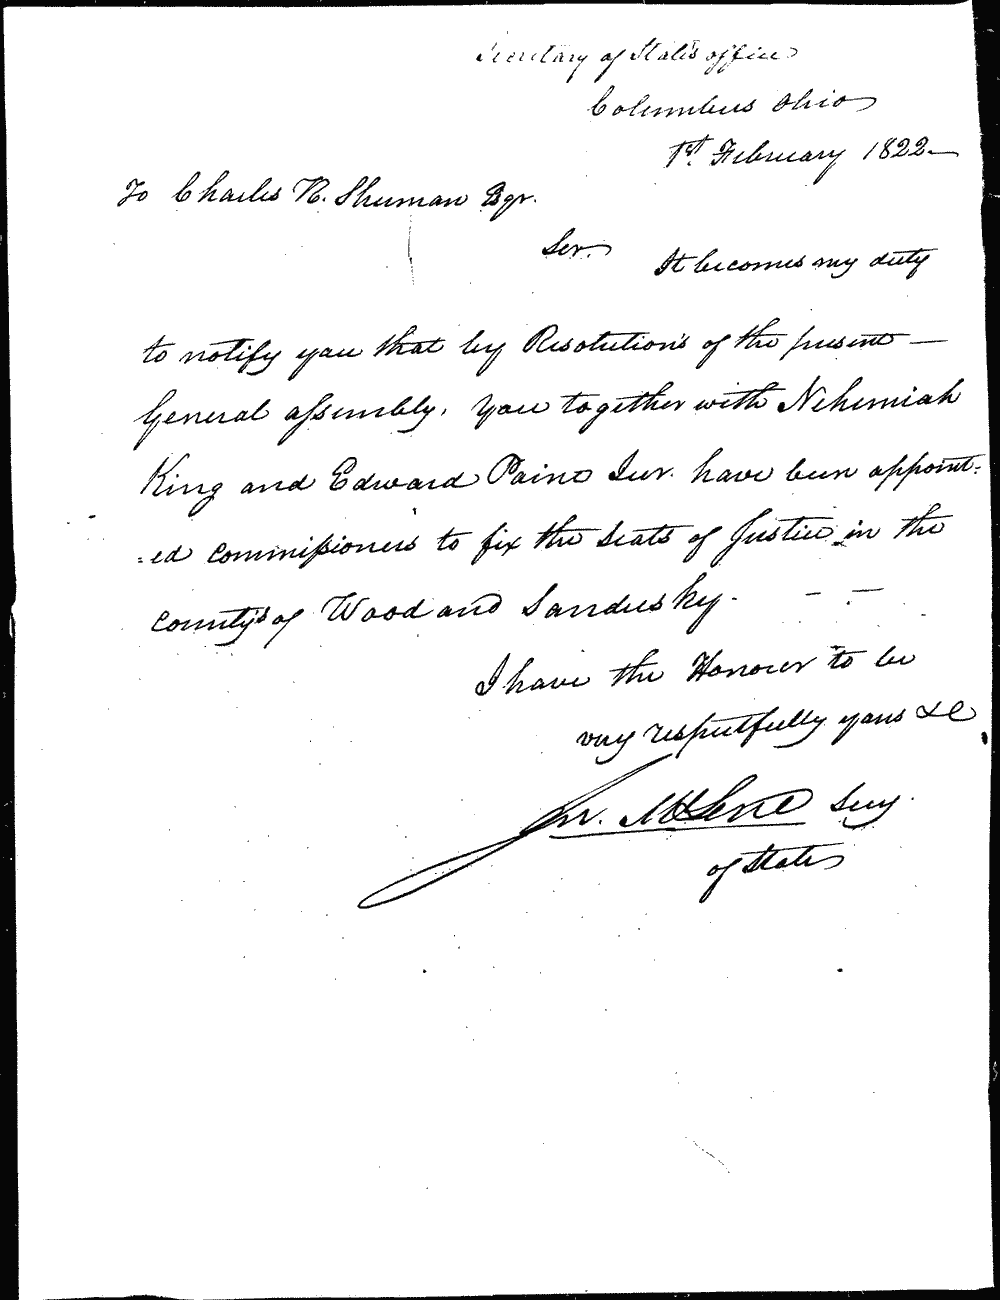 Secretary of State's office
Columbus Ohio
1st. February 1822
To Charles R. Shuman Esqr.
Ser.
It becomes my duty
to notify you that by Resolutions of the present —
General assembly. You together with Nehemiah
King and Edward Paine Jur. have been appoint:
:ed commissioners to fix the Seats of Justice in the
county's of Wood and Sandusky. - . -
I have the Honour to be
very respectfully yours &c
Jn. McLene Secy.
of State